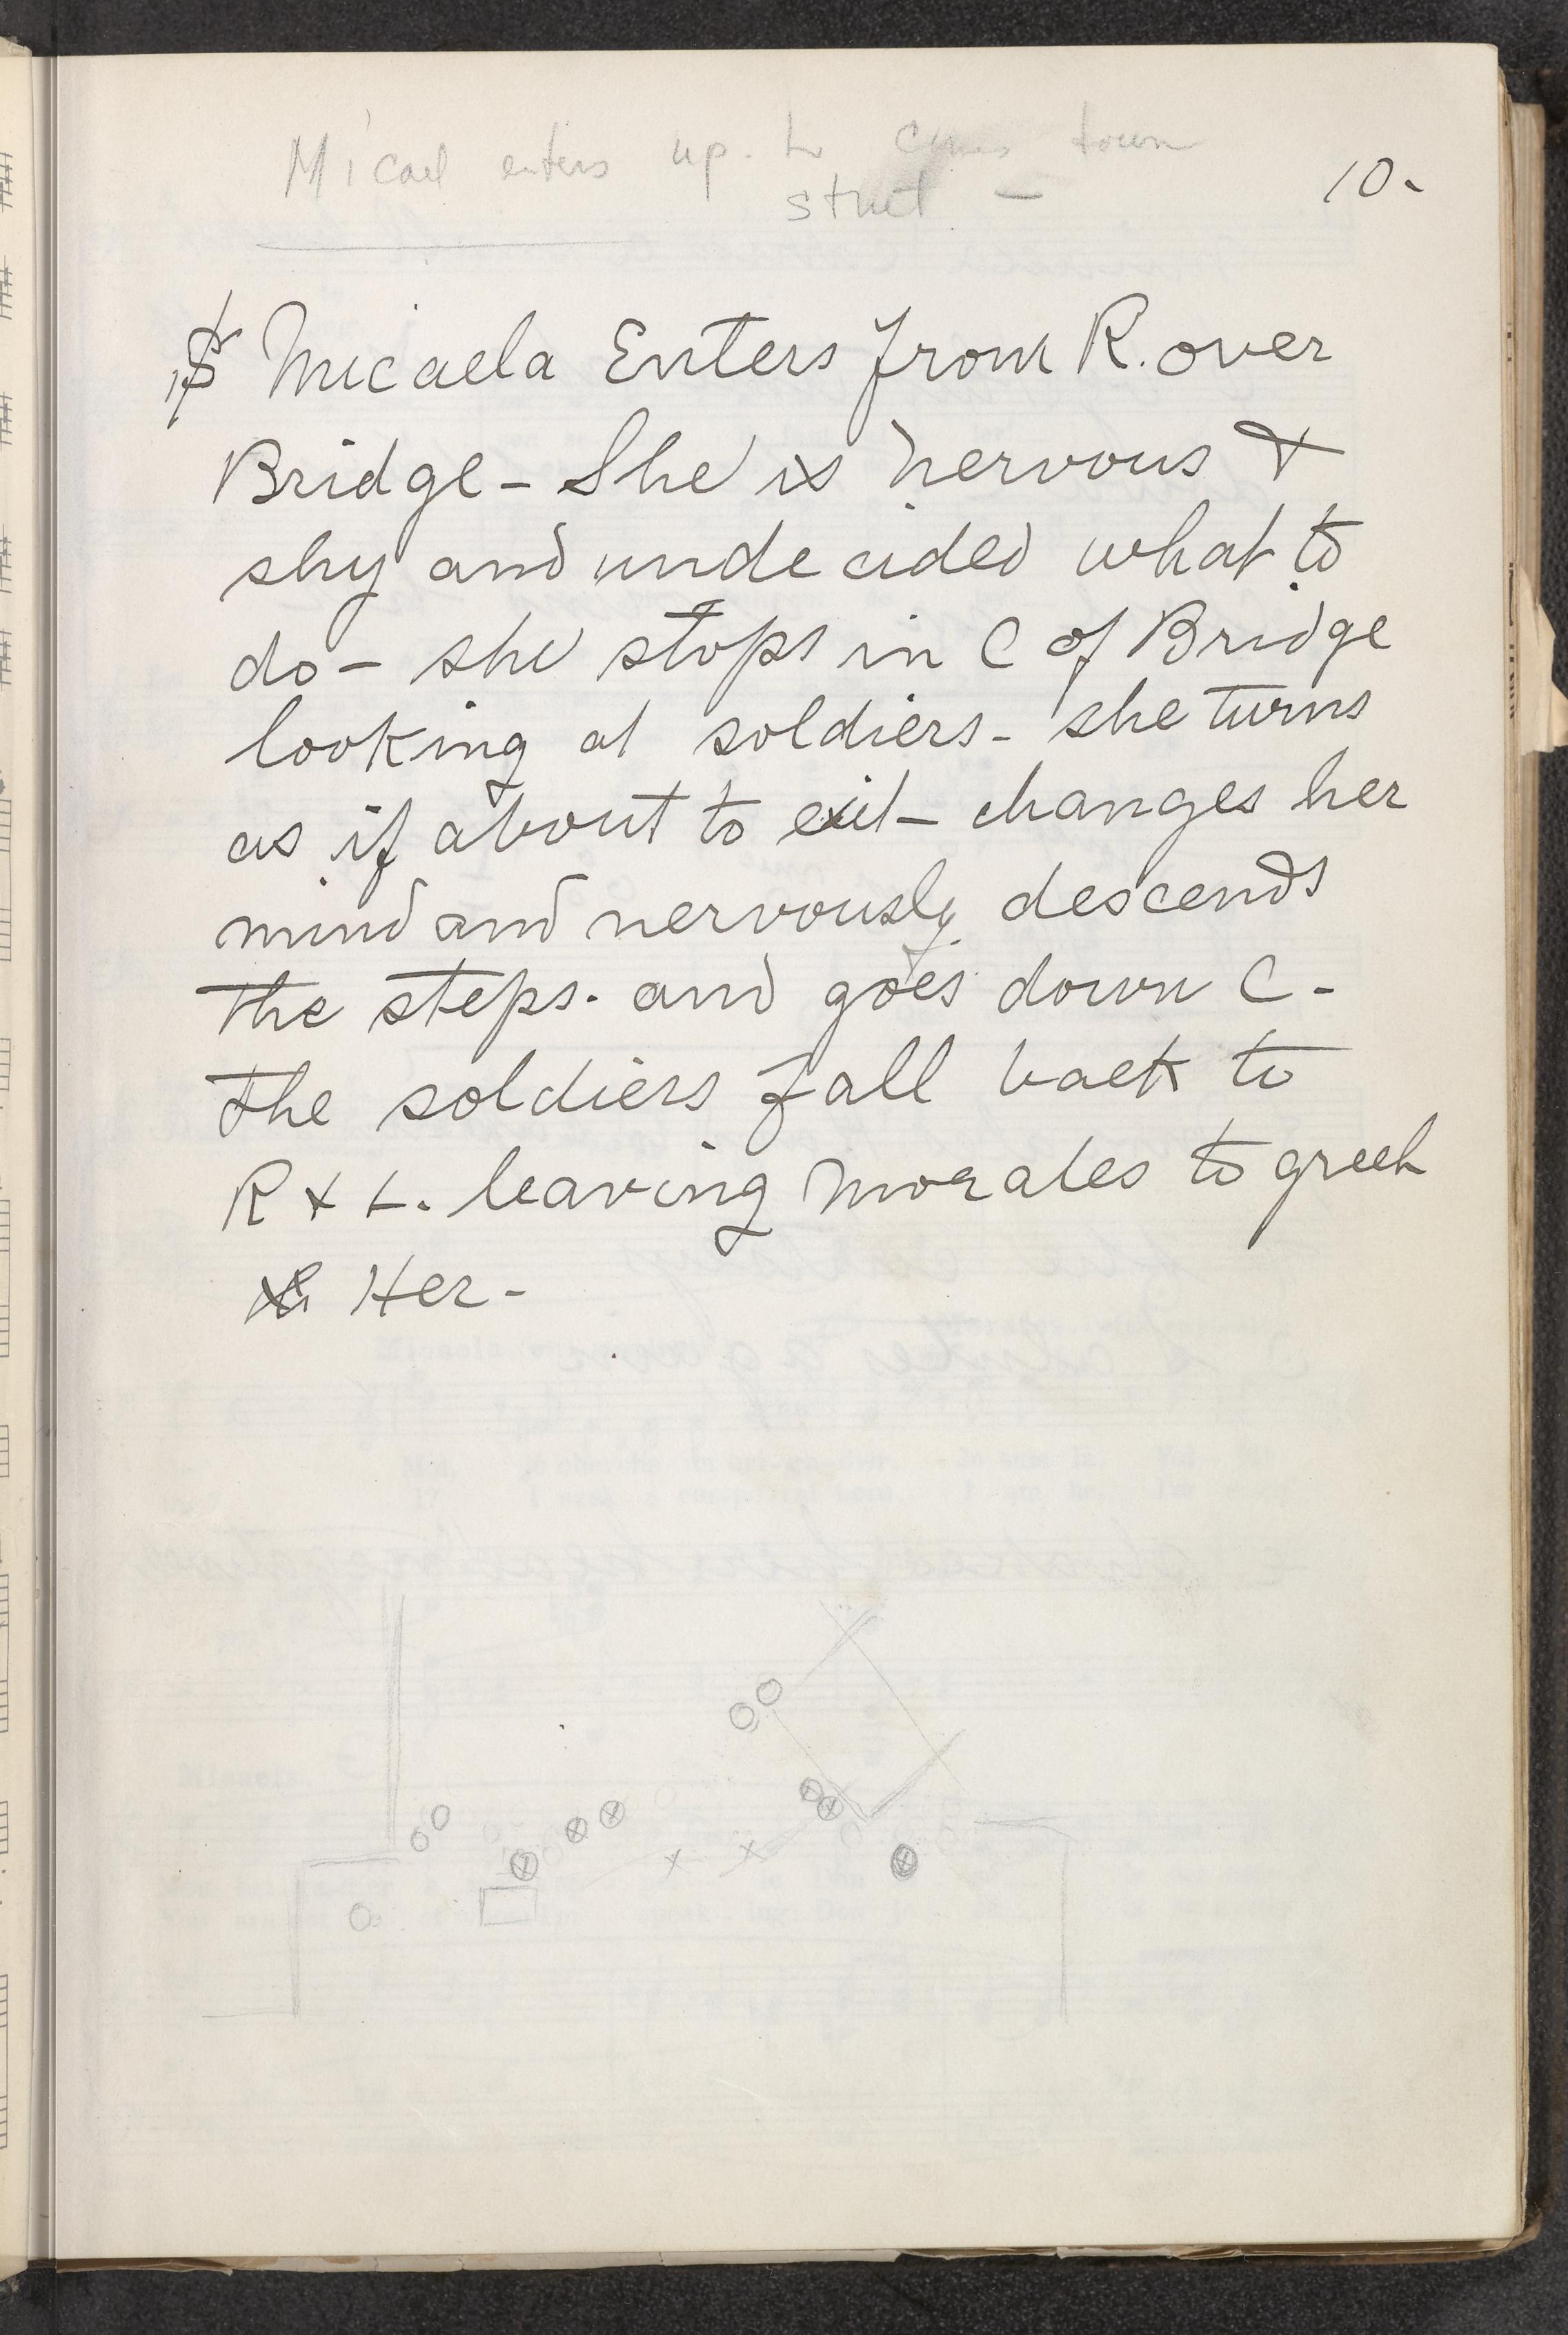 Micael enters up. L comes down
street —
10.
Micaela Enters from R. over
Bridge - She is nervous &
shy and undecided what to
do - she stops in C of Bridge
looking at soldiers - she turns
as if about to exit - changes her
mind and nervously descends
the steps. and goes down C -
the soldiers fall back to
R & L. leaving Morales to greet
Her -